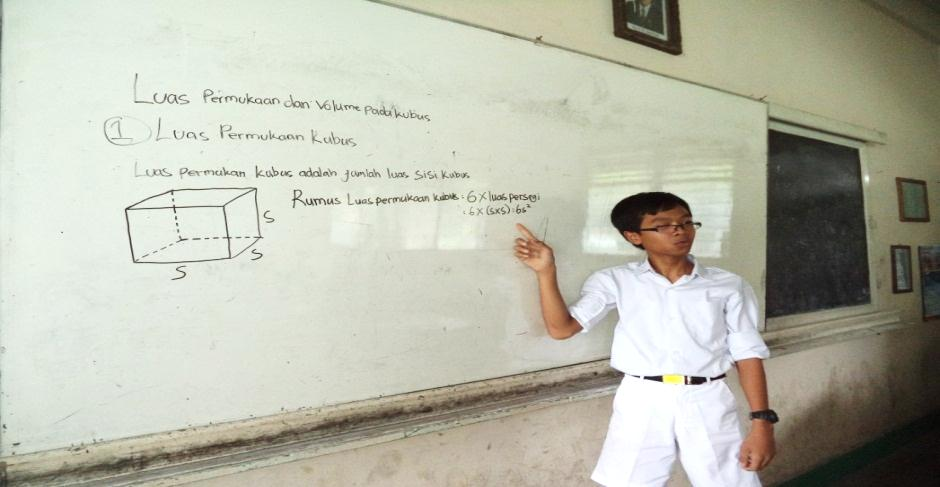 Luas Permukaan dan Volume Pada kubus
1 Luas Permukaan Kubus
Luas permukan kubus adalah jumlah luas sisi kubus
Rumus Luas permukaan kubus : 6 X luas persegi
: 6 X (sxs) : 6s²
S
S
S